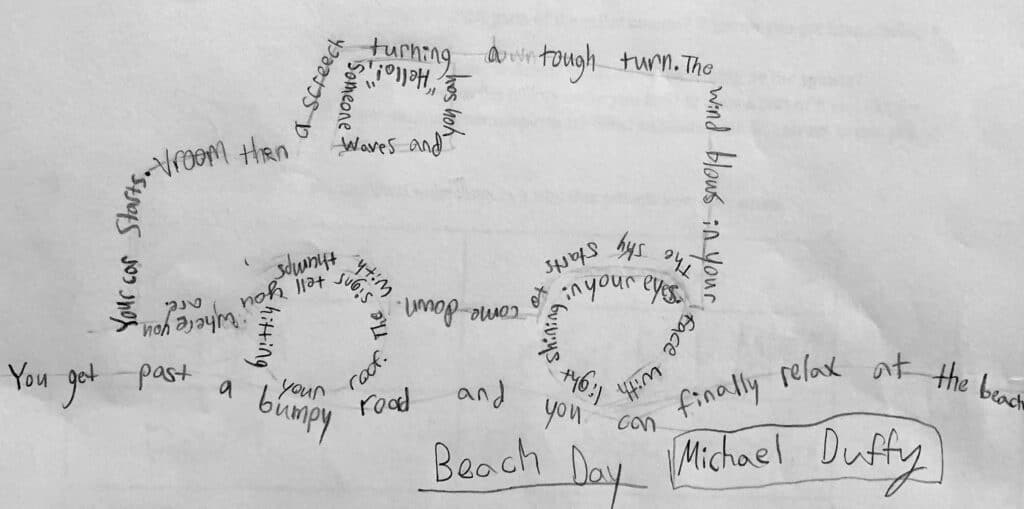 Your car starts.
Vroom then
a screech
turning down tough turn. The
wind blows in your
face with
light shining
in your eyes.
The sky starts to
come down.
The road signs tell you
where you are.
Someone
waves and
"Hello!"
with thumps
hitting
your
You get past a bumpy road and you can finally relax at the beach
Beach Day
Michael Duffy